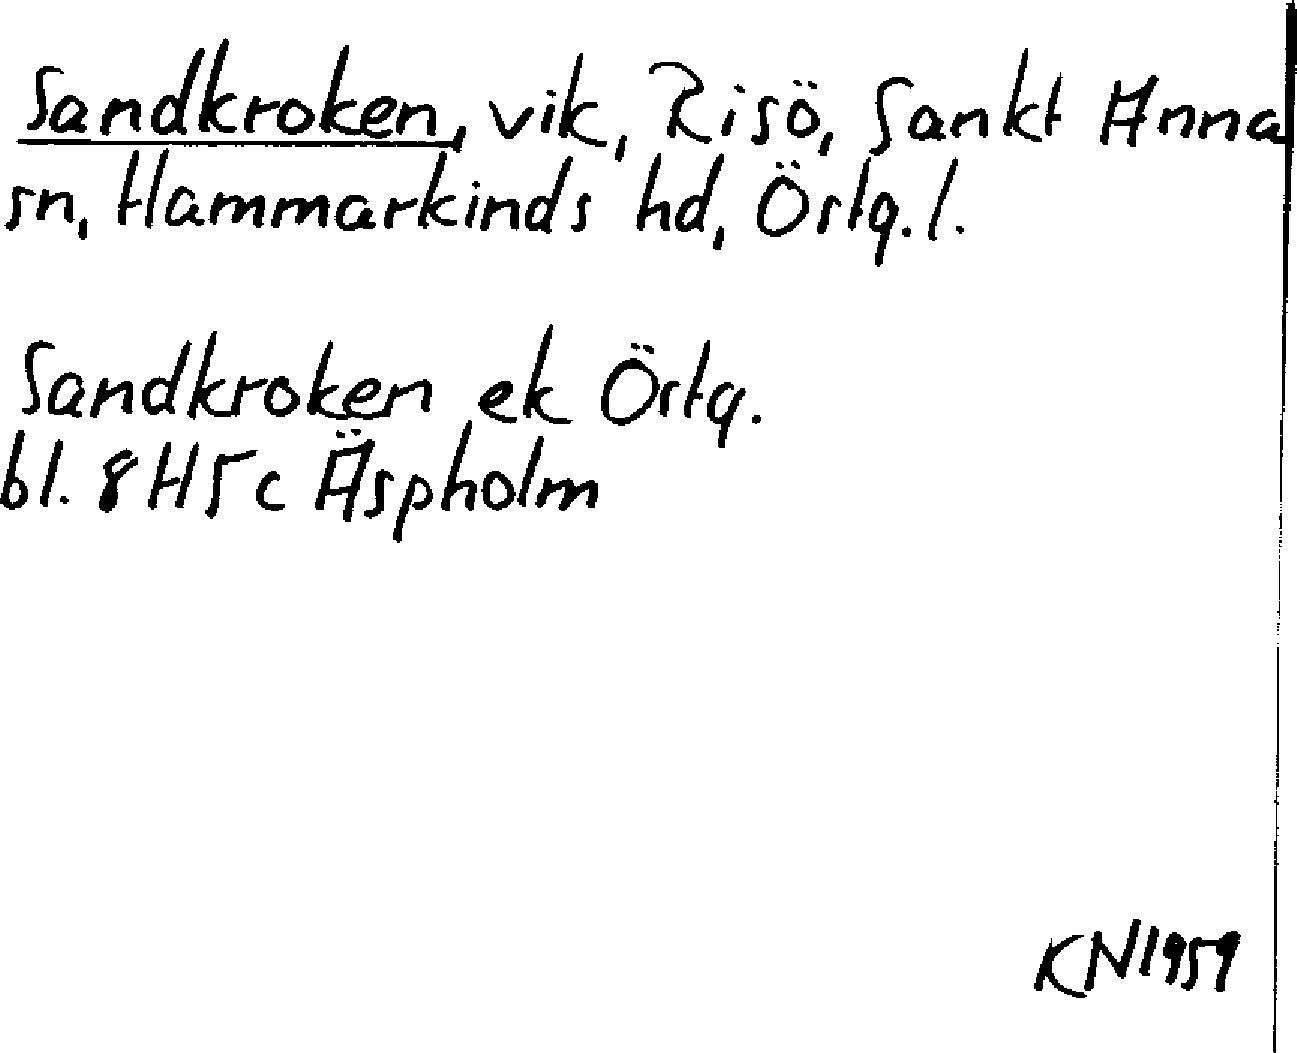 Sandkroken, vik, Risö, Sankt Anna
sn, Hammarkinds hd, Östg. l.
Sandkroken ek Östg.
bl. 8H5c Äspholm
KN 1959